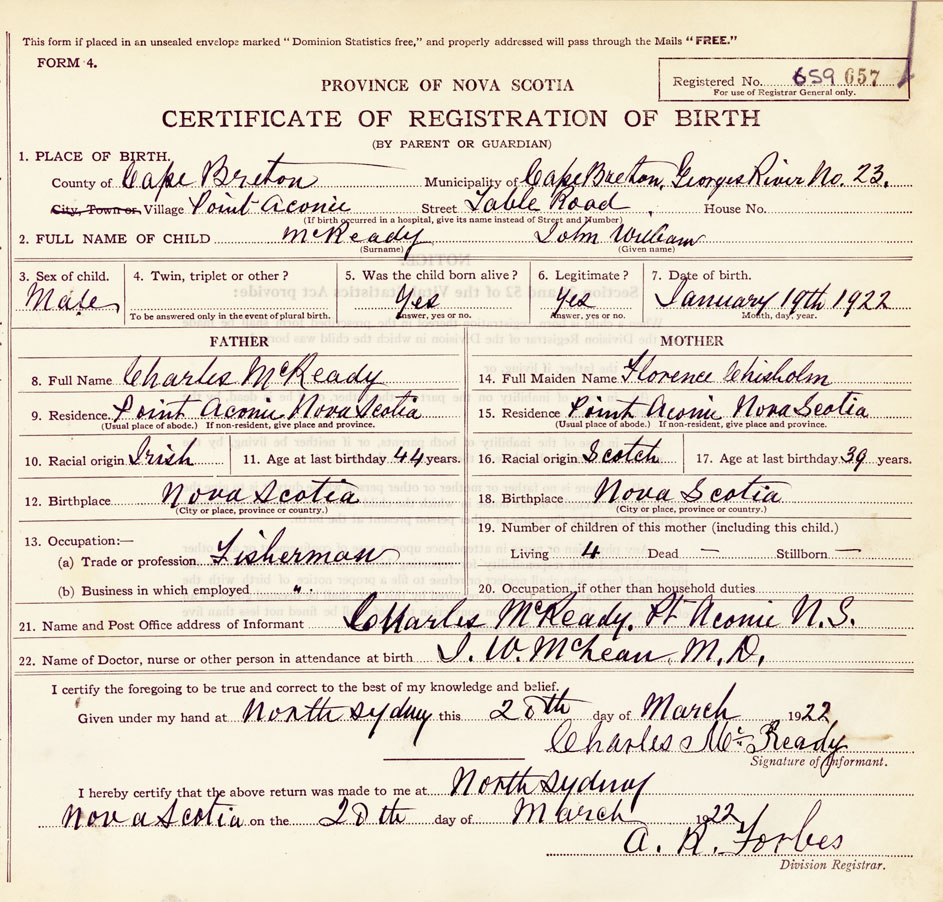 This form if placed in an unsealed envelope marked "Dominion Statistics free," and properly addressed will pass through the Mails "FREE."
FORM 4.
Registered No. 659 657
For use of Registrar General only.
PROVINCE OF NOVA SCOTIA
CERTIFICATE OF REGISTRATION OF BIRTH
(BY PARENT OR GUARDIAN)
1. PLACE OF BIRTH.
County of Cape Breton Municipality of Cape Breton, Georges River No. 23.
City, Town or Village Point Aconie Street Table Road House No.
(If birth occurred in a hospital, give its name instead of Street and Number)
2. FULL NAME OF CHILD McKeady John William
(Surname) (Given name)
3. Sex of child. 4. Twin, triplet or other? 5. Was the child born alive? 6. Legitimate? 7. Date of birth.
Male Yes Yes January 19th 1922
To be answered only in the event of plural birth. Answer, yes or no. Answer, yes or no. Month, day, year.
FATHER MOTHER
8. Full Name Charles McKeady 14. Full Maiden Name Florence Chisholm
9. Residence. Point Aconie Nova Scotia 15. Residence Point Aconie Nova Scotia
(Usual place of abode.) If non-resident, give place and province. (Usual place of abode.) If non-resident, give place and province.
10. Racial origin Irish 11. Age at last birthday 44 years. 16. Racial origin Scotch 17. Age at last birthday 39 years.
12. Birthplace Nova Scotia 18. Birthplace Nova Scotia
(City or place, province or country.) (City or place, province or country.)
19. Number of children of this mother (including this child.)
13. Occupation:—
(a) Trade or profession Fisherman Living 4 Dead — Stillborn —
(b) Business in which employed " 20. Occupation, if other than household duties
21. Name and Post Office address of Informant Charles McKeady. Pt Aconie N.S.
22. Name of Doctor, nurse or other person in attendance at birth J. W. McLean, M.D.
I certify the foregoing to be true and correct to the best of my knowledge and belief.
Given under my hand at North Sydney this 20th day of March 1922
Charles McKeady
Signature of Informant.
I hereby certify that the above return was made to me at North Sydney
Nova Scotia on the 20th day of March 1922
A. R. Forbes
Division Registrar.